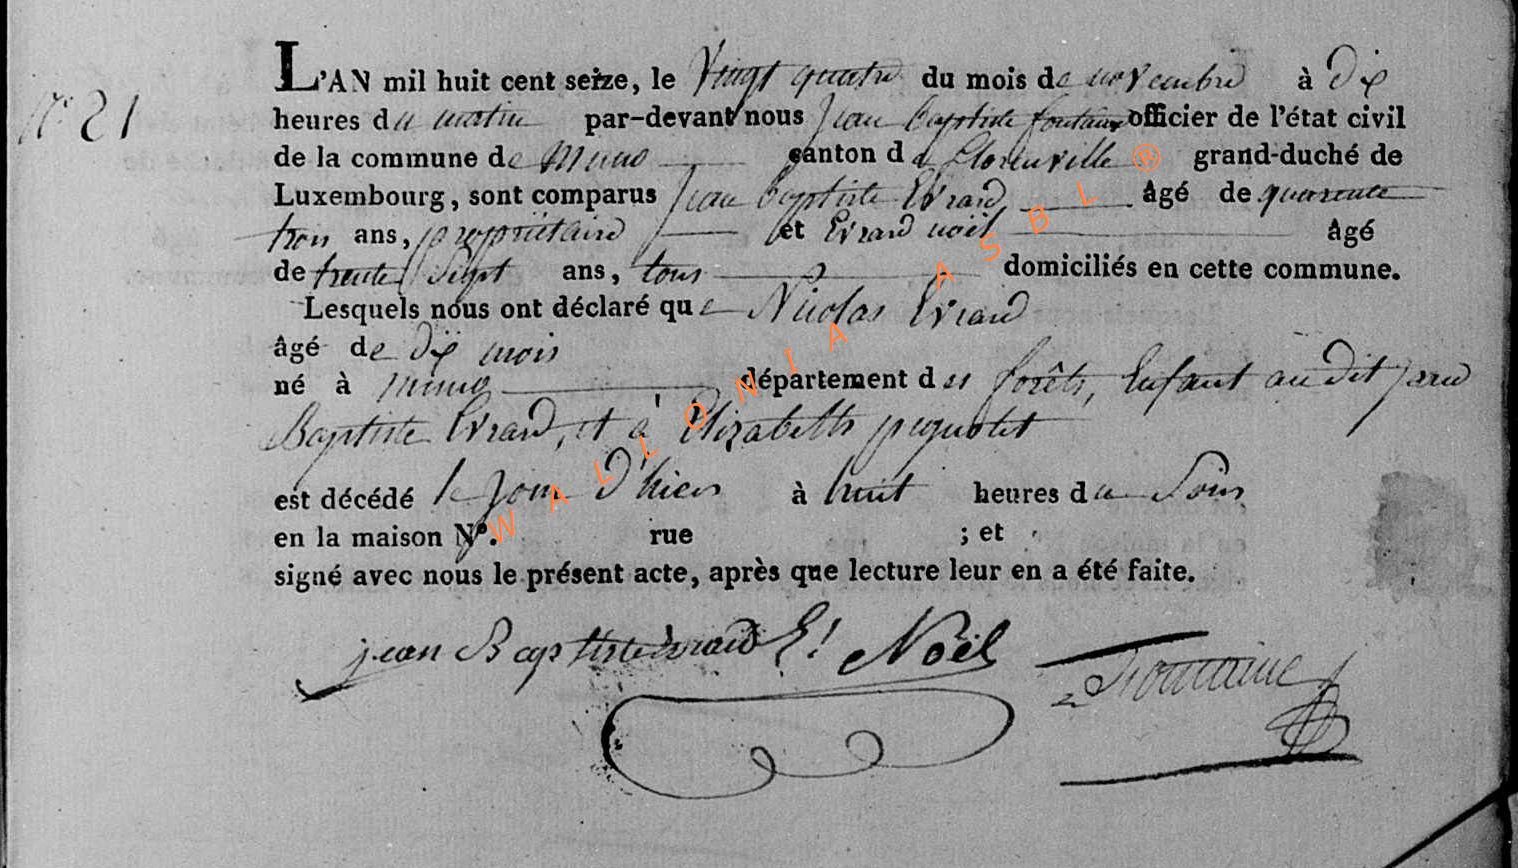 N° 21
L'AN mil huit cent seize, le Vingt quatre du mois de novembre à dix
heures du matin par-devant nous Jean baptiste fontaine officier de l'état civil
de la commune de Muno canton de florenville ® grand-duché de
Luxembourg, sont comparus Jean baptiste Evrard âgé de quarente
trois ans, propriétaire et Evrard noël âgé
de trente Sept ans, tous domiciliés en cette commune.
Lesquels nous ont déclaré que Nicolas Evrard
âgé de dix mois
né à muno département des forêts, Enfant au dit jean
Baptiste Evrard, et à Elizabeth pequotet
est décédé le Jour d'hier à huit heures du Soir
en la maison N°. rue ; et
signé avec nous le présent acte, après que lecture leur en a été faite.
jean Baptiste Evrard E! Noël Fontaine
WALLONIA ASBL